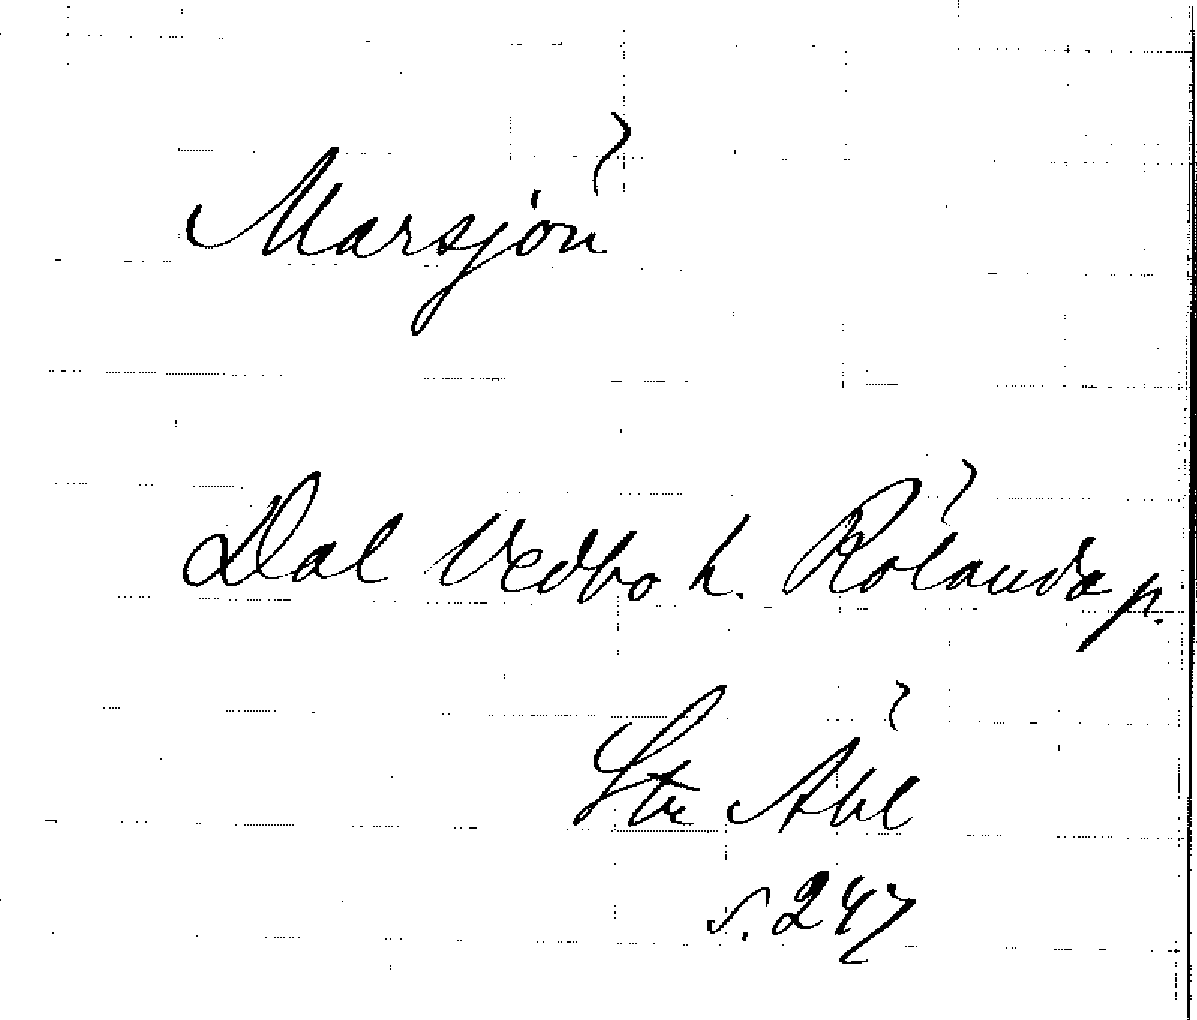 Marsjön
Dal Vedbo h. Rölanda p.
s. 247